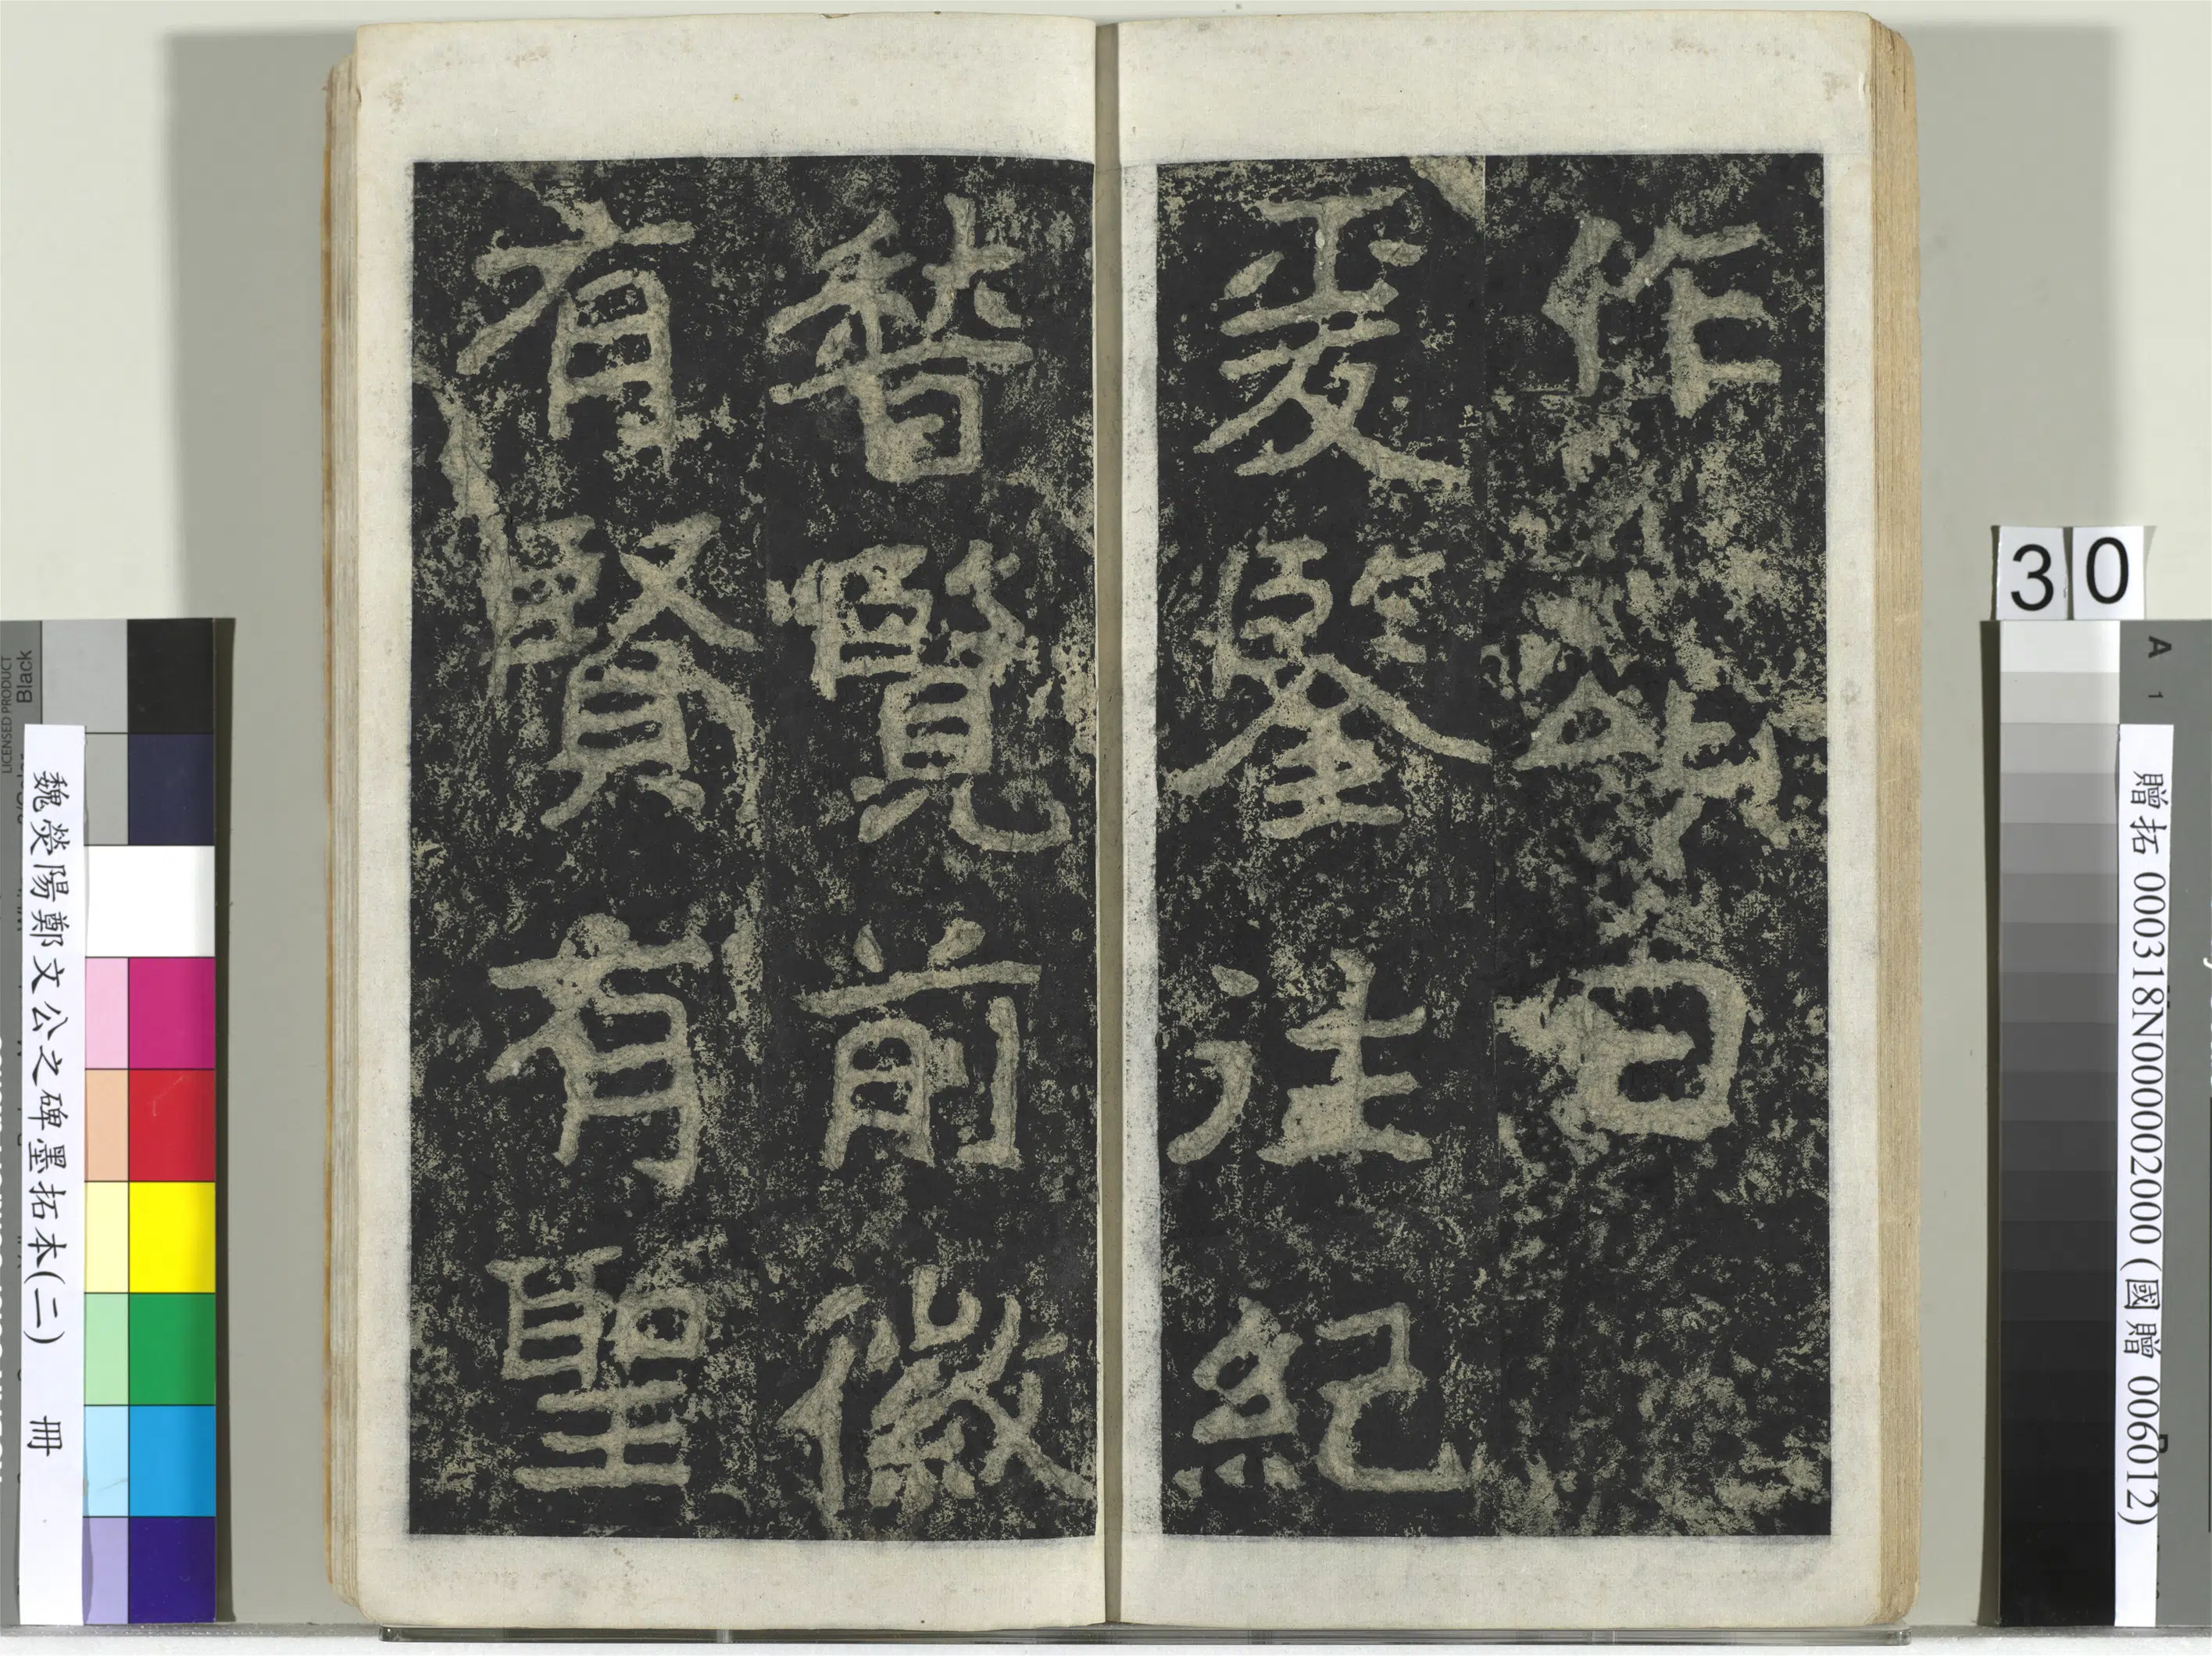 作
頌曰
爰鑒往紀
稽覽前徽
有賢有聖
30
A
1
贈拓 000318N000002000 (國贈 006012)
魏滎陽鄭文公之碑墨拓本(二) 冊
LICENSED PRODUCT
Black